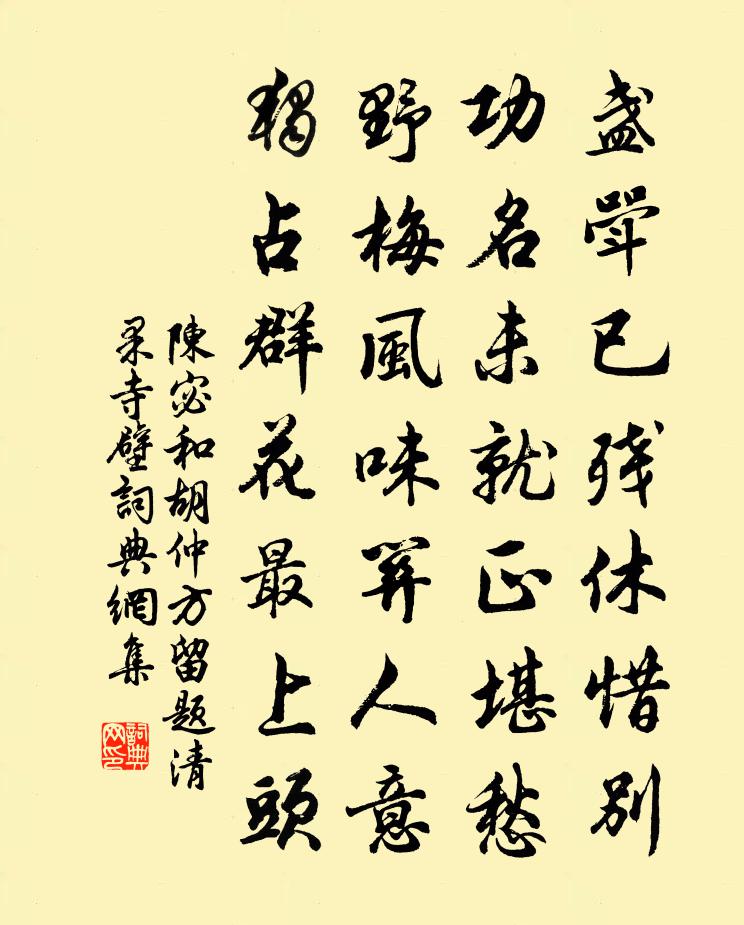 盏斝已残休惜别
功名未就正堪愁
野梅風味人意
獨占群花最上頭
陳宓和胡仲方留题清
杲寺壁詞典網集
詞典
网印